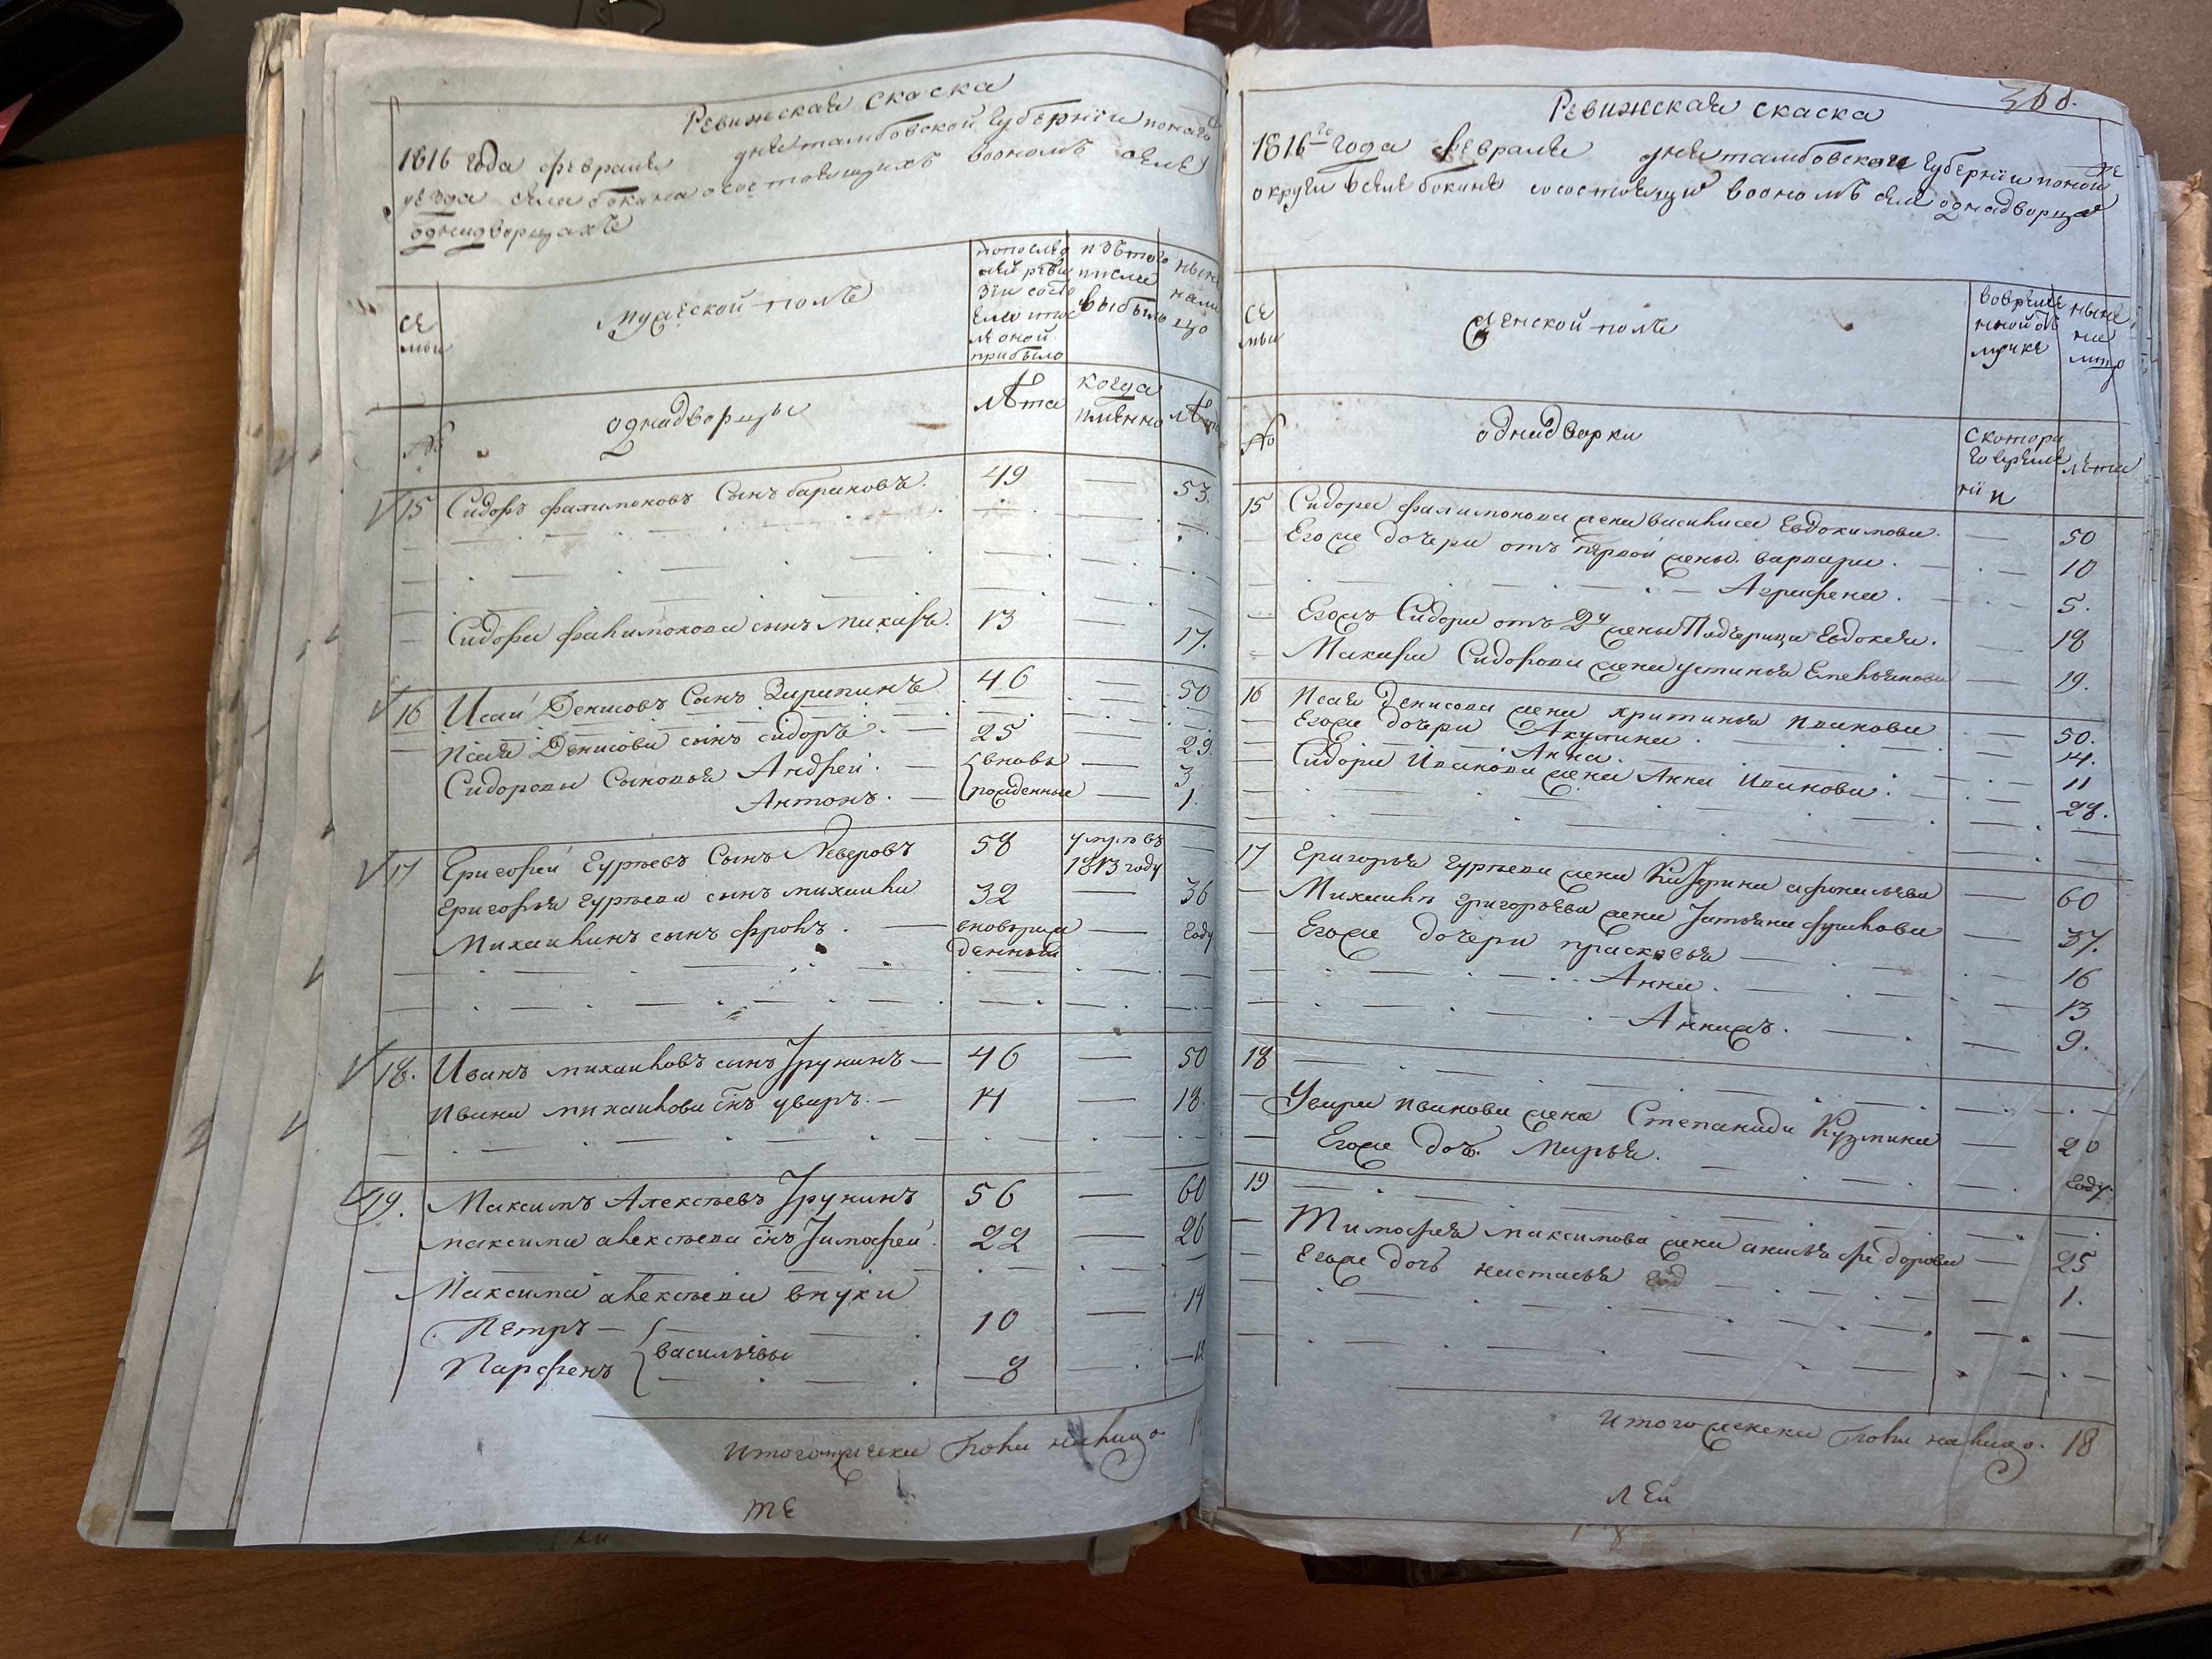 Ревижская скаска
1816 года февраля дня тамбовской губернiи
уезда села бокина о состоящихъ воономъ селе
однадворцахъ
се
мьи
мужеской полъ
попослед
ней реви
зiи состо
яло ипос
ле оной
прибыло
изътого
числа
выбыло
ныне
нали
цо
№
однадворцы
лѣта
когда
имянно
лѣта
15 Сидоръ филимоновъ Сынъ бариновъ. 49 — 53.
Сидора филимонова сынъ макаръ. 13 17.
16 Исай Денисовъ Сынъ 46 — 50
Исая Денисова сынъ сидоръ. 25 — 29.
Сидоровы Сыновья Андрей. — вновь — 3
Антонъ. — рожденные — 1.
17 Григорей Гурьевъ Сынъ Неверовъ 58 умръ въ —
1813 году
Григорья гурьева сынъ михаила 32 — 36
Михаилинъ сынъ фролъ. — вноворож — году
денный
18. Иванъ михаиловъ сынъ Трунинъ — 46 — 50
Ивана михаилова снъ уваръ. — 14 — 18.
19. Максимъ Алексъевъ Трунинъ 56 — 60
максима алексъева снъ Тимофей 22 — 26
Максима алексъева внуки
Петръ — 10 — 14
васильевы
Парфенъ 8 — 12
Итого мужеска пола налицо.
те
Ревижская скаска
1816го года февраля дня тамбовской губернiи
округи вселе бокине состоящи воономъ селе однадворца
се
мьи
женской полъ
вовреме
нной отъ
лучке
ныне
на
лицо
№
однадворки
скотора
го време
нi и
лета
15 Сидора филимонова жена василиса Евдокимова. — 50
Егоже дочери отъ первой жены. варвара. 10
Аграфена. 5.
Егожъ Сидора отъ 2й жены Падчерица Евдокея. — 18
Макара Сидорова жена устинья Емельянова — 19.
16 Исая Денисова жена христинья Иванова — 50.
Егоже дочери Акулина. 14.
Анна. 11
Сидора Иванова жена Анна Иванова. 28.
17 Григорья гурьева жена Катерина афонасьева — 60
Михаила григорьева жена Татьяна фролова — 37.
Егоже дочери прасковья — 16
Анна. 13
Анисья. 9.
18
Увара Иванова жена Степанида Кузмина — 20
Егоже дочь. Марья. году.
19
Тимофея максимова жена анисья федорова — 25
Егоже дочь настасья 1.
Итого женска пола налицо. 18
лей